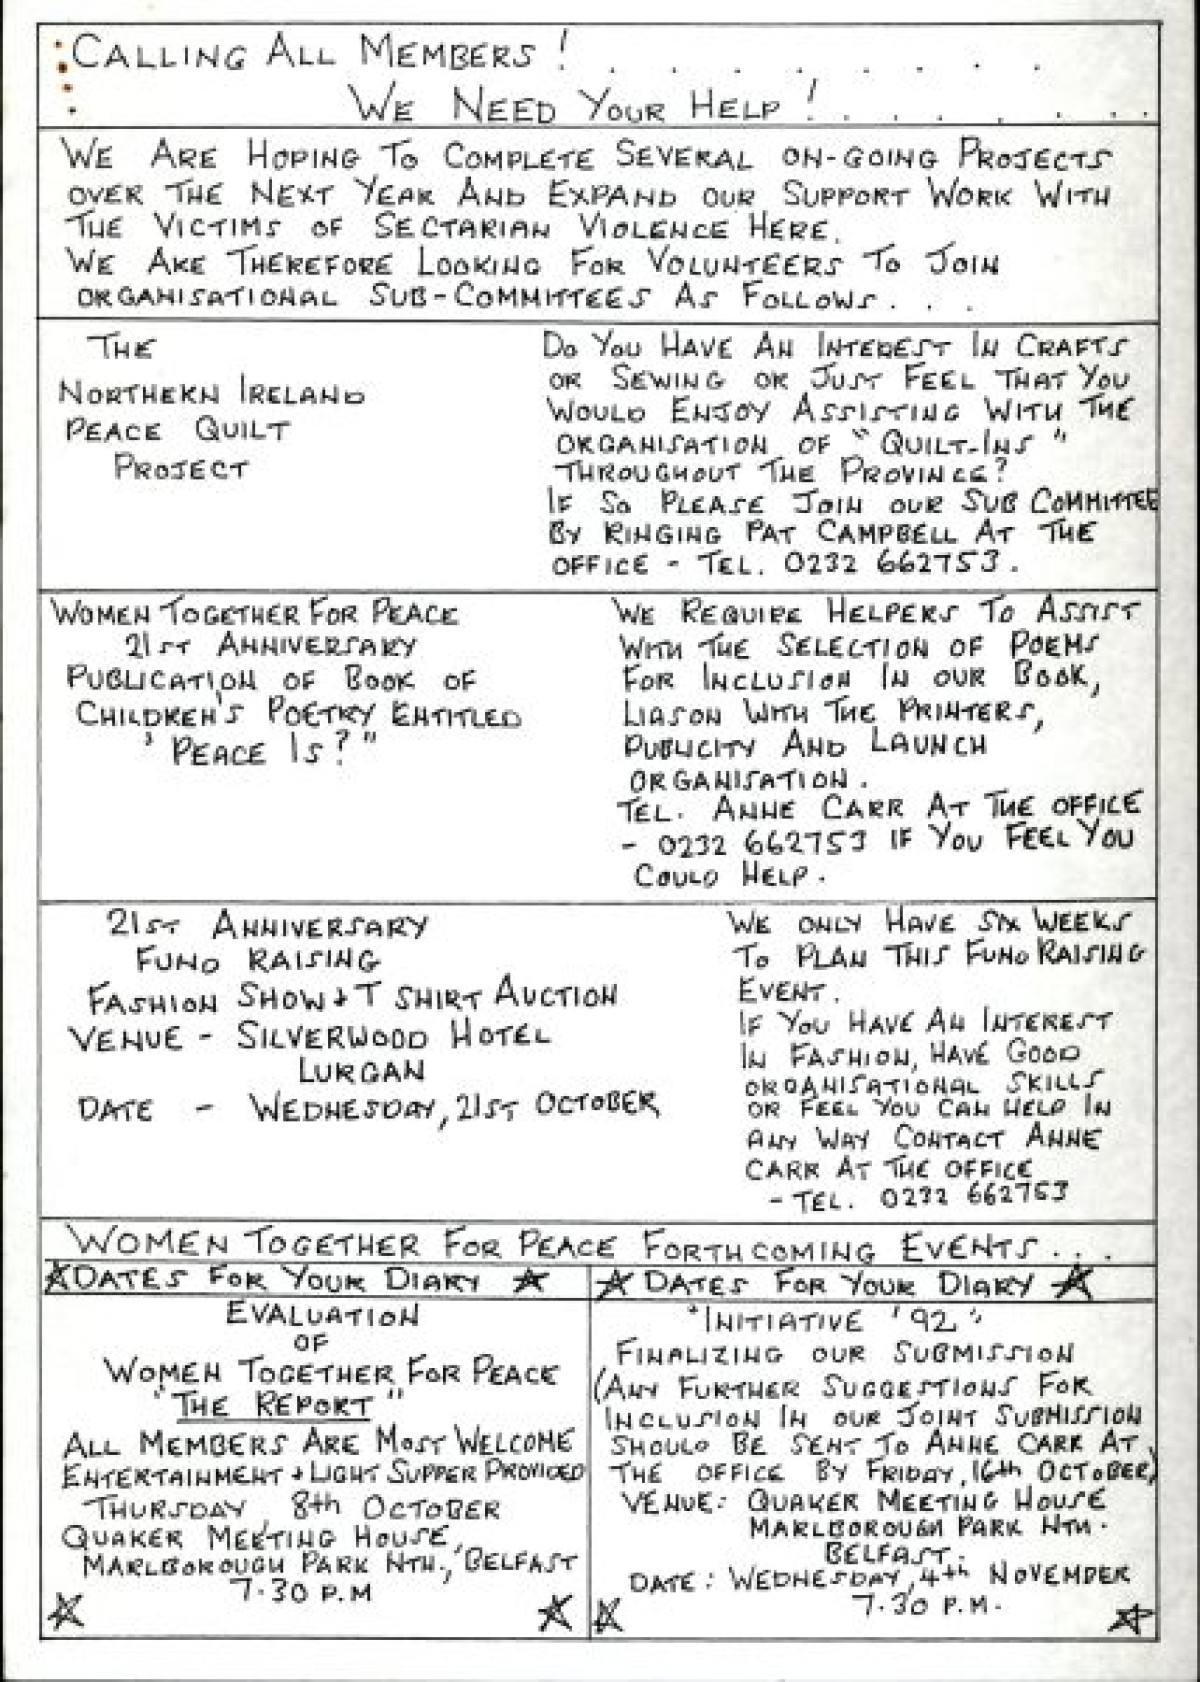 CALLING ALL MEMBERS! . . . . . . .
WE NEED YOUR HELP! . . . . . . . .
WE ARE HOPING TO COMPLETE SEVERAL ON-GOING PROJECTS
OVER THE NEXT YEAR AND EXPAND OUR SUPPORT WORK WITH
THE VICTIMS OF SECTARIAN VIOLENCE HERE.
WE ARE THEREFORE LOOKING FOR VOLUNTEERS TO JOIN
ORGANISATIONAL SUB-COMMITTEES AS FOLLOWS . . .
THE
NORTHERN IRELAND
PEACE QUILT
PROJECT
DO YOU HAVE AN INTEREST IN CRAFTS
OR SEWING OR JUST FEEL THAT YOU
WOULD ENJOY ASSISTING WITH THE
ORGANISATION OF "QUILT-INS"
THROUGHOUT THE PROVINCE?
IF SO PLEASE JOIN OUR SUB COMMITTEE
BY RINGING PAT CAMPBELL AT THE
OFFICE - TEL. 0232 662753.
WOMEN TOGETHER FOR PEACE
21ST ANNIVERSARY
PUBLICATION OF BOOK OF
CHILDREN'S POETRY ENTITLED
'PEACE IS?"
WE REQUIRE HELPERS TO ASSIST
WITH THE SELECTION OF POEMS
FOR INCLUSION IN OUR BOOK,
LIASON WITH THE PRINTERS,
PUBLICITY AND LAUNCH
ORGANISATION.
TEL. ANNE CARR AT THE OFFICE
- 0232 662753 IF YOU FEEL YOU
COULD HELP.
21ST ANNIVERSARY
FUND RAISING
FASHION SHOW + T SHIRT AUCTION
VENUE - SILVERWOOD HOTEL
LURGAN
DATE - WEDNESDAY, 21ST OCTOBER
WE ONLY HAVE SIX WEEKS
TO PLAN THIS FUND RAISING
EVENT.
IF YOU HAVE AN INTEREST
IN FASHION, HAVE GOOD
ORGANISATIONAL SKILLS
OR FEEL YOU CAN HELP IN
ANY WAY CONTACT ANNE
CARR AT THE OFFICE
- TEL. 0232 662753
WOMEN TOGETHER FOR PEACE FORTHCOMING EVENTS...
DATES FOR YOUR DIARY
EVALUATION
OF
WOMEN TOGETHER FOR PEACE
"THE REPORT"
ALL MEMBERS ARE MOST WELCOME
ENTERTAINMENT + LIGHT SUPPER PROVIDED
THURSDAY, 8th OCTOBER
QUAKER MEETING HOUSE,
MARLBOROUGH PARK NTH., BELFAST
7.30 P.M
DATES FOR YOUR DIARY
"INITIATIVE '92"
FINALIZING OUR SUBMISSION
(ANY FURTHER SUGGESTIONS FOR
INCLUSION IN OUR JOINT SUBMISSION
SHOULD BE SENT TO ANNE CARR AT
THE OFFICE BY FRIDAY, 16th OCTOBER)
VENUE: QUAKER MEETING HOUSE
MARLBOROUGH PARK NTH.
BELFAST.
DATE: WEDNESDAY, 4th NOVEMBER
7.30 P.M.